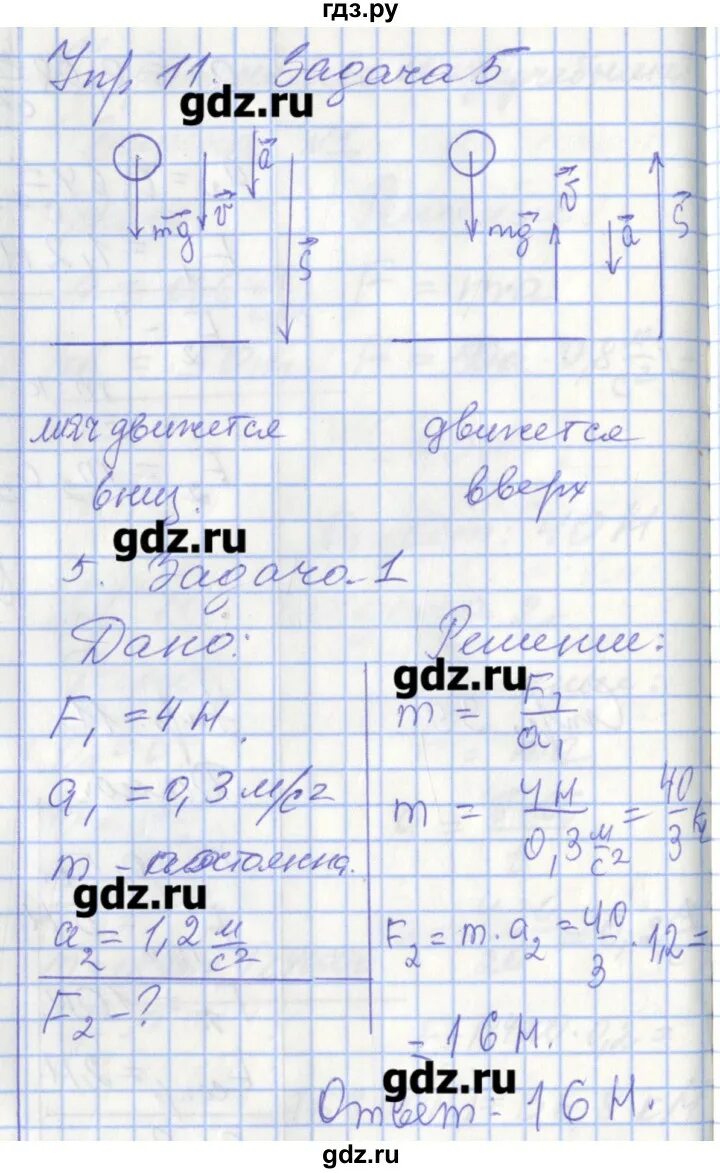 гдз.ру
Упр. 11. Задача 5
gdz.ru
mg v a S
mg v a S
мяч движется вниз.
движется вверх
gdz.ru
5. Задача 1
Дано:
F₁ = 4 Н.
a₁ = 0,3 м/с²
m - постоянна.
gdz.ru
a₂ = 1,2 м/с²
F₂ - ?
Решение:
gdz.ru
m = F₁/a₁
m = 4 Н / 0,3 м/с² = 40/3 кг
F₂ = m · a₂ = 40/3 · 1,2 =
= 16 Н.
gdz.ru
Ответ: 16 Н.
gdz.ru